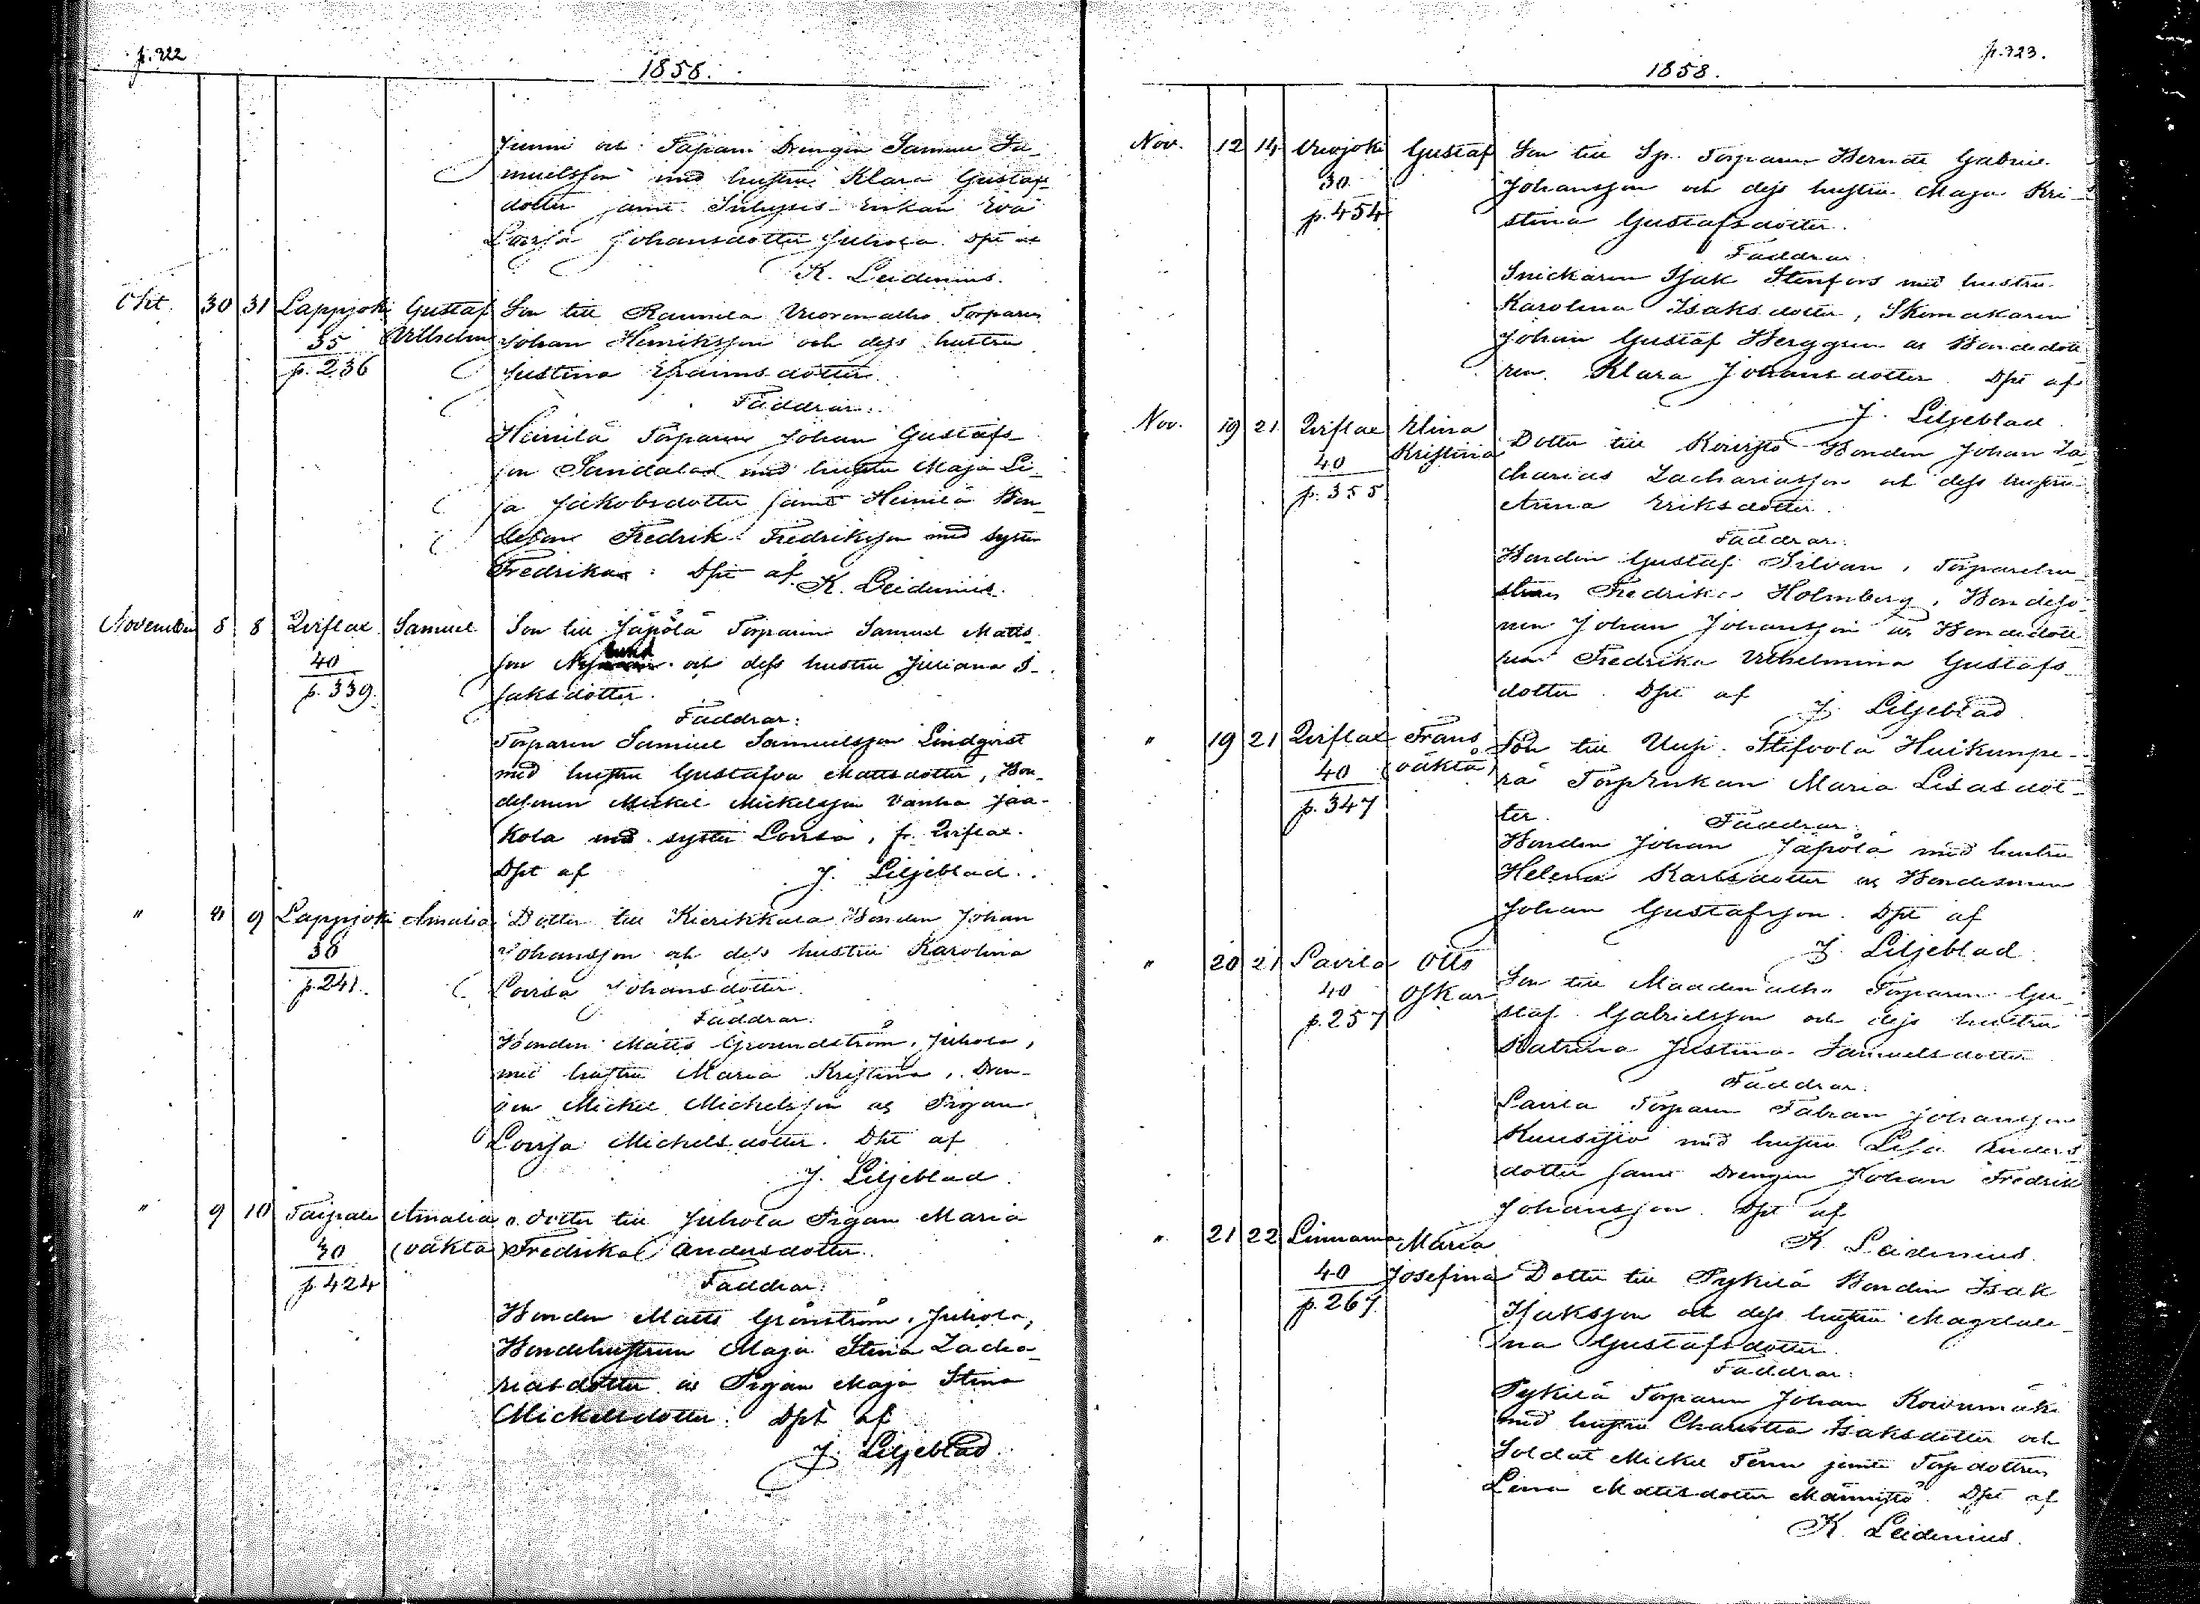 p. 322
1858.
Junni och Tapani Drengen Samuel Sa-
muelsson med hustru Klara Gustafs-
dotter samt Inhyses Enkan Eva
Lovisa Johansdotter Juhola. Dpt af
K. Leidenius.
Okt. 30 31 Lappjoki Gustaf Son till Raumila Vuorenalho Torparen
35 Vilhelm Johan Henriksson och dess hustru
p. 236 Justina Efraimsdotter.
Faddrar:
Heinilä Torparen Johan Gustafs-
son Sandala med hustru Maja Li-
sa Jakobsdotter samt Heinilä Bon-
deson Fredrik Fredriksson med syster
Fredrika. Dpt af K. Leidenius.
November 8 8 Zerflat Samuel Son till Jäpölä Torparen Samuel Matts-
40 son och dess hustru Juliana I-
p. 339. saksdotter.
Faddrar:
Torparen Samuel Samuelsson Lindqvist
med hustru Gustafva Mattsdotter, Bon-
desonen Mickel Mickelsson Vanha Jaa-
kola med syster Lovisa, fr. Zerflat.
Dpt af J. Liljeblad.
" 8 9 Lappjoki Amalia Dotter till Kierikkala Bonden Johan
38 Johansson och dess hustru Karolina
p. 241. Lovisa Johansdotter.
Faddrar.
Bonden Matts Groundström, Juhola,
med hustru Maria Kristina, Dren-
gen Mickel Mickelsson och Pigan
Lovisa Mickelsdotter. Dpt af
J. Liljeblad.
" 9 10 Taipale Amalia o. dotter till Juhola Pigan Maria
30 (oäkta) Fredrika Andersdotter.
p. 424
Faddrar:
Bonden Matts Grönström, Juhola,
Bondehustrun Maja Stina Zacha-
riasdotter och Pigan Maja Stina
Mickelsdotter. Dpt af
J. Liljeblad.
p. 323.
1858.
Nov. 12 14 Gustaf Son till Sp. Torparen Berndt Gabriel
30 Johansson och dess hustru Maja Kri-
p. 454 stina Gustafsdotter.
Faddrar.
Snickaren Isak Stenfors med hustru
Karolina Isaksdotter, Skomakaren
Johan Gustaf Berggren och Bondedott-
ren Klara Johansdotter. Dpt af
J. Liljeblad
Nov. 19 21 Zerflat Elina Dotter till Koivisto Bonden Johan Za-
40 Kristina charias Zachariasson och dess hustru
p. 355 Anna Eriksdotter.
Faddrar:
Bonden Gustaf Silvan, Torparehu-
strun Fredrika Holmberg, Bondeso-
nen Johan Johansson och Bondedott-
ren Fredrika Vilhelmina Gustafs-
dotter. Dpt af J. Liljeblad
" 19 21 Zerflat Frans Son till Uusi Stifvola Huikunpe-
40 (oäkta) rä Torp Enkan Maria Lisasdot-
p. 347 ter. Faddrar:
Bonden Johan Jäpölä med hustru
Helena Karlsdotter och Bondesonen
Johan Gustafsson. Dpt af
J. Liljeblad.
" 20 21 Lavila Otto Son till Maadenalho Torparen Gu-
40 Oskar staf Gabrielsson och dess hustru
p. 257 Katrina Justina Samuelsdotter
Faddrar:
Lavila Torparen Fabian Johansson
Kuusisto med hustru Lisa Anders-
dotter samt Drengen Johan Fredrik
Johansson. Dpt af
K. Leidenius.
" 21 22 Linnama Maria
40 Josefina Dotter till Pykilä Bonden Isak
p. 267. Isaksson och dess hustru Magdale-
na Gustafsdotter.
Faddrar:
Pykilä Torparen Johan Koivumäki
med hustru Charlotta Isaksdotter och
Soldat Mickel Tenn jemte Torpdottren
Lena Mattsdotter Männistö. Dpt af
K. Leidenius.